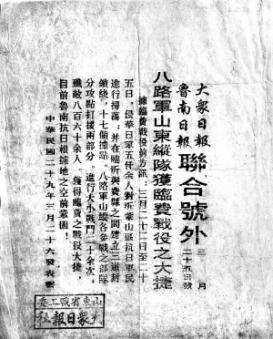 大眾日報
魯南日報
聯合號外
三月二十五日
八路軍山東縱隊獲臨費戰役之大捷
據臨費戰役前方訊：三月二十二日至二十
五日，侵華日軍五仟余人對沂蒙山區抗日軍民
進行掃蕩；并在臨沂與費縣之間建立三道封
鎖綫，十七個據點。八路軍山縱各參戰之部隊
分攻點打援兩部分，進行大小戰鬥二十余次，
殲敵八百六十余人，獲得臨費之戰役大捷，
目前魯南抗日根據地之空前鞏固！
中華民國二十九年三月二十六日表彰
山東省戰工委
大眾日報社